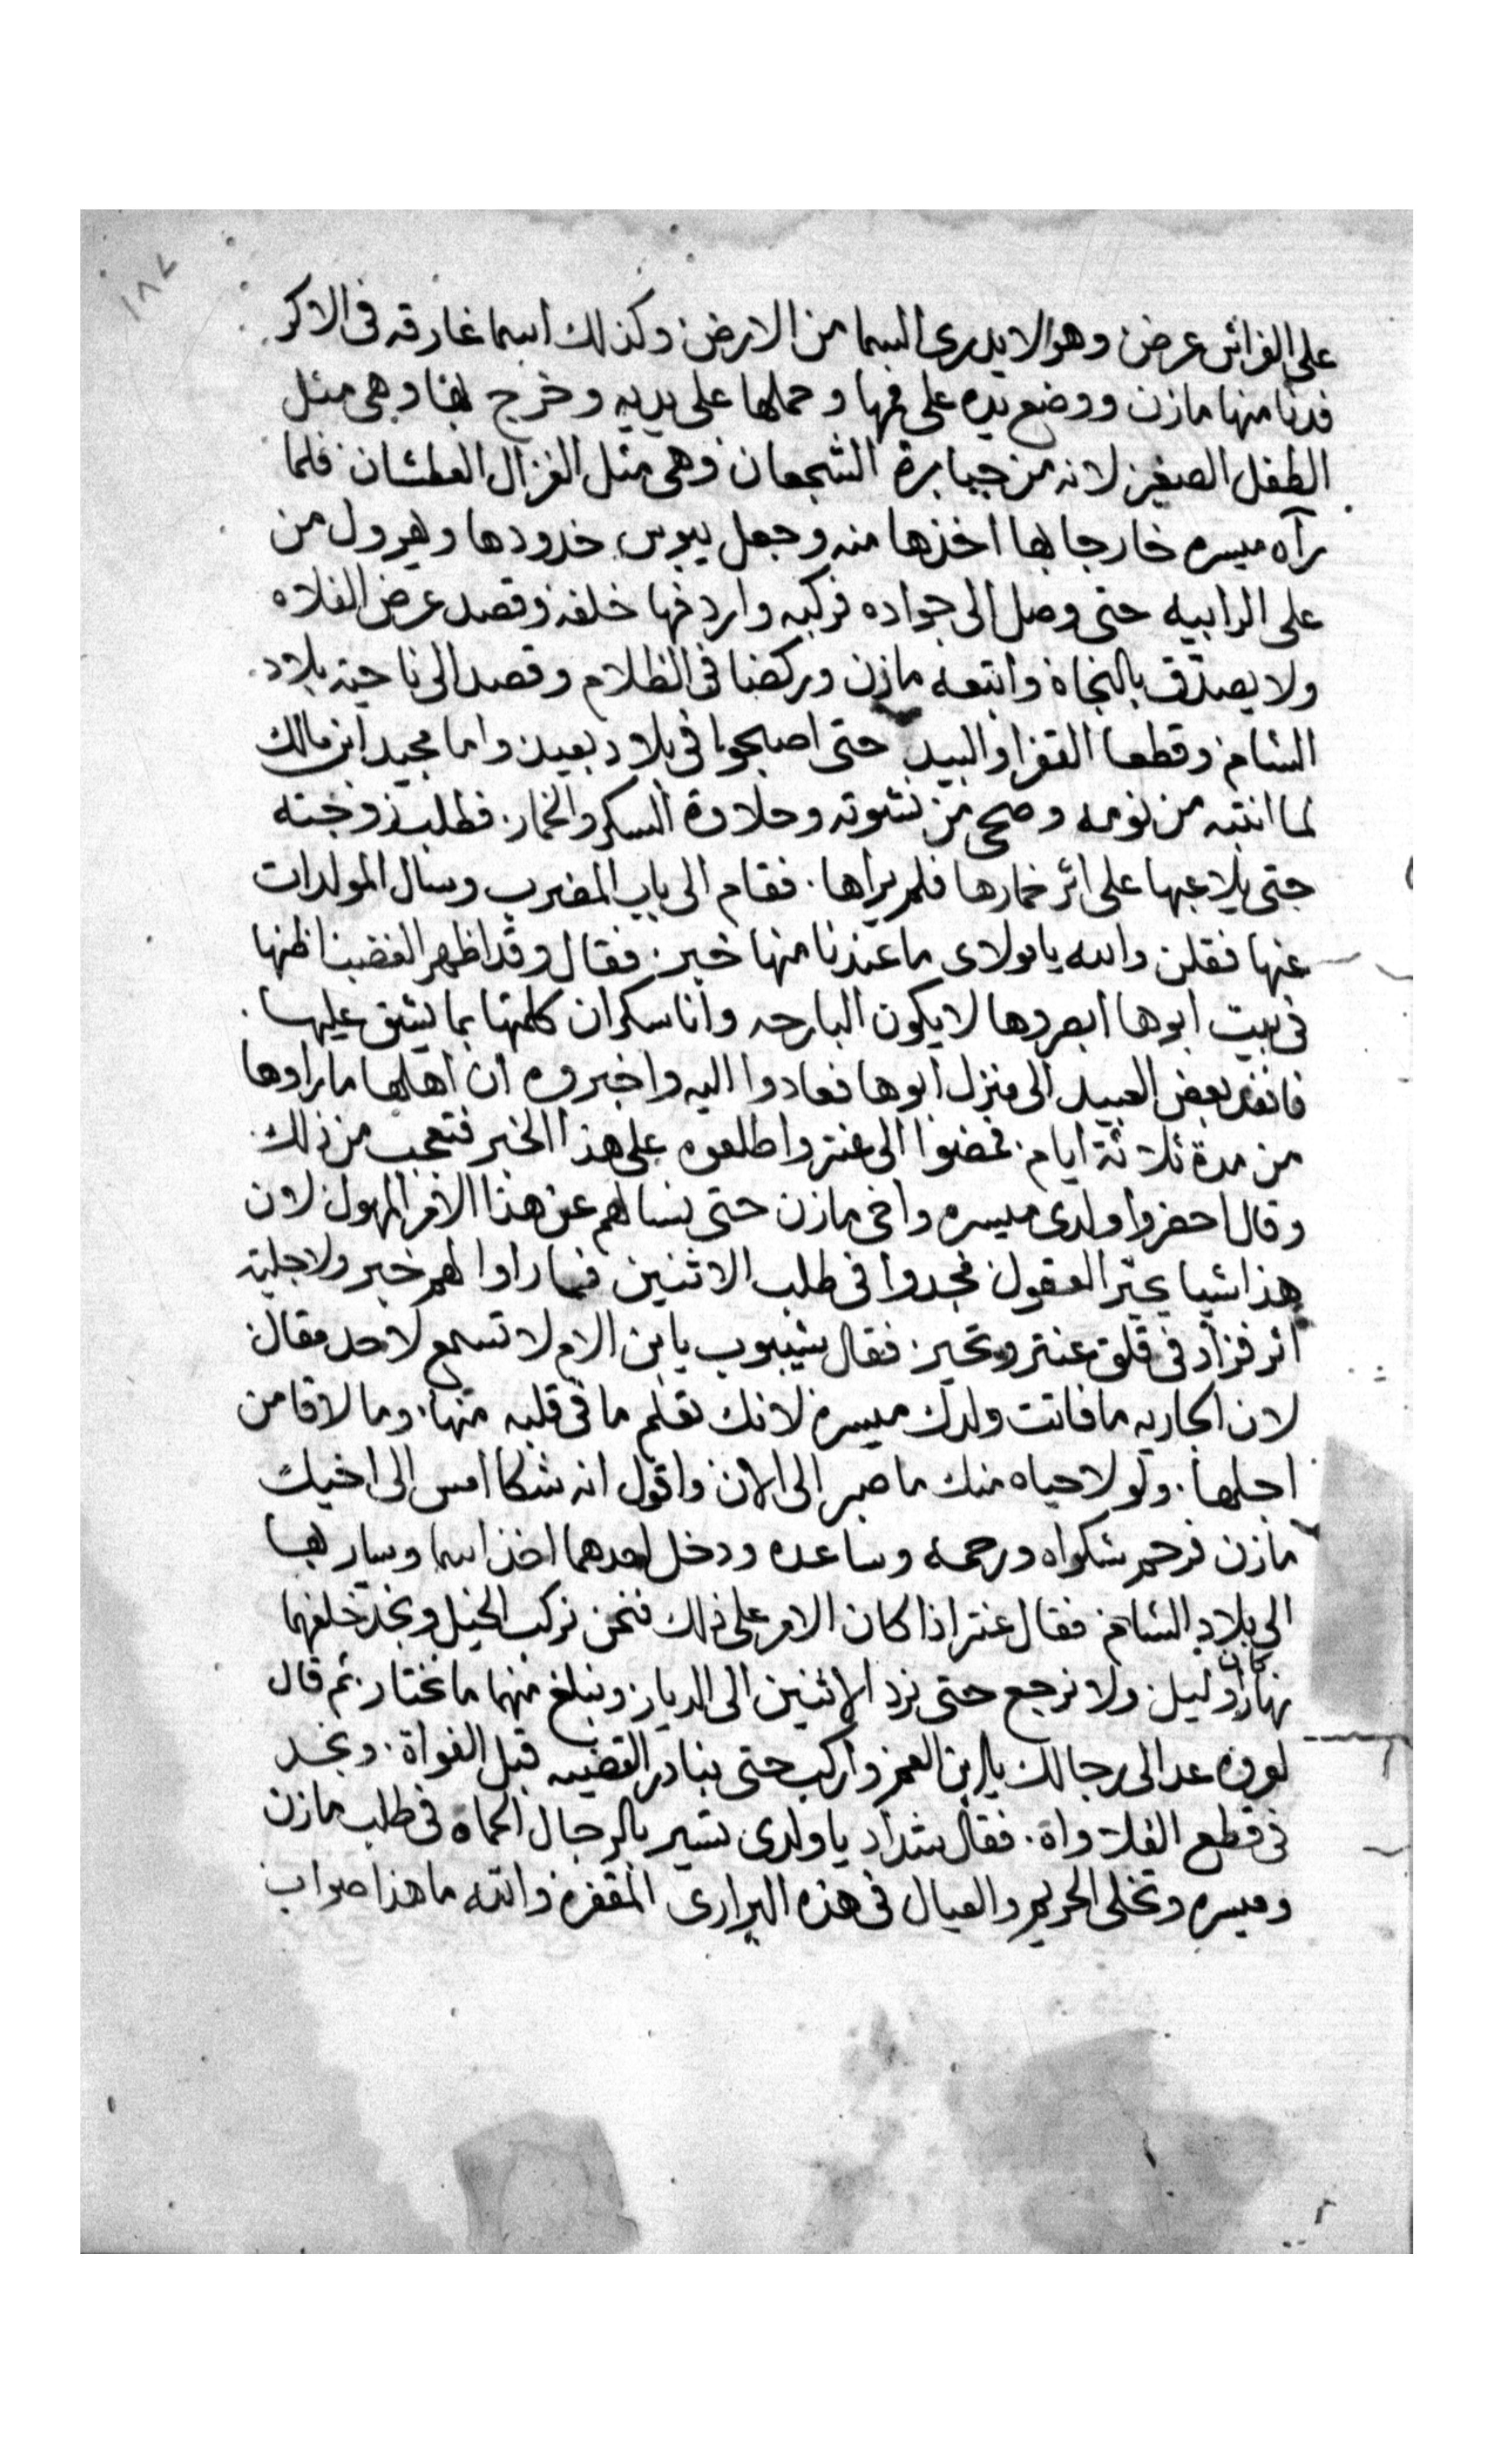 ١٨٧
على الفراش عرض وهو لا يدرى السما من الارض وكذلك اسما غارقه فى الاكر
فدنا منها مازن ووضع يده على فمها وحملها على يديه وخرج بها وهى مثل
الطفل الصغير لانه من جبابرة الشجعان وهى مثل الغزال العطشان فلما
رآه ميسره خارجا بها اخذها منه وجعل يبوس خدودها وهرول من
على الرابيه حتى وصل الى جواده فركبه واردفها خلفه وقصد عرض الفلاه
ولا يصدق بالنجاه واتبعه مازن وركضا فى الظلام وقصد الى ناحية بلاد
الشام وقطعا القفر والبيد حتى اصبحوا فى بلاد بعيد واما مجيد ابن مالك
لما انتبه من نومه وصحى من نشوته وحلاوة السكر والخمار فطلب زوجته
حتى يلاعبها على اثر خمارها فلم يراها فقام الى باب المضرب وسال المولدات
عنها فقلن والله يا مولاى ما عندنا منها خبر فقال وقد اظهر الغضب اظنها
فى بيت ابوها ابصروها لا يكون البارحه وانا سكران كلمتها بما يشق عليها
فانفد بعض العبيد الى منزل ابوها فعادوا اليه واخبروه ان اهلها ما راوها
من مدة ثلاثة ايام فمضوا الى عنتر واطلعوه على هذا الخبر فتعجب من ذلك
وقال احضروا ولدى ميسره واخى مازن حتى نسالهم عن هذا الامر المهول لان
هذا شيا يحير العقول فجدوا فى طلب الاثنين فما راوا لهم خبر ولا جلية
اثر فزاد فى قلق عنتر وتحير فقال شيبوب يا بن الام لا تسمع لاحد مقال
لان الجاريه ما فاتت ولدك ميسره لانك تعلم ما فى قلبه منها وما لاقا من
اجلها ولولا حياه منك ما صبر الى الان واقول انه شكا امس الى اخيك
مازن فرحم شكواه ورحمه وساعده ودخل احدهما اخذ اسما وسار بها
الى بلاد الشام فقال عنتر اذا كان الامر على ذلك فنحن نركب الخيل ونجد خلفهما
نهار وليل ولا نرجع حتى نرد الاثنين الى الديار ونبلغ منهما ما نختار ثم قال
لعروه عد الى رجالك يا ابن العم واركب حتى نبادر القضيه قبل الفواة ونجد
فى قطع الفلاواة فقال شداد يا ولدى تسير بالرجال الحماه فى طلب مازن
وميسره وتخلى الحريم والعيال فى هذه البرارى المقفره والله ما هذا صواب